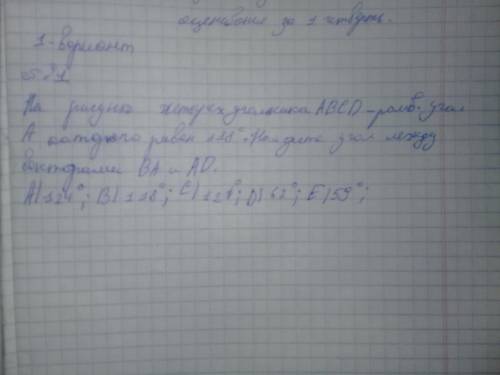 оценивания за 1 четверть.
1-вариант
№1
На рисунке четырехугольника ABCD-ромб. Угол
А которого равен 118°. Найдите угол между
векторами BA и AD.
A) 124°; B) 118°; C) 121°; D) 62°; E) 59°;